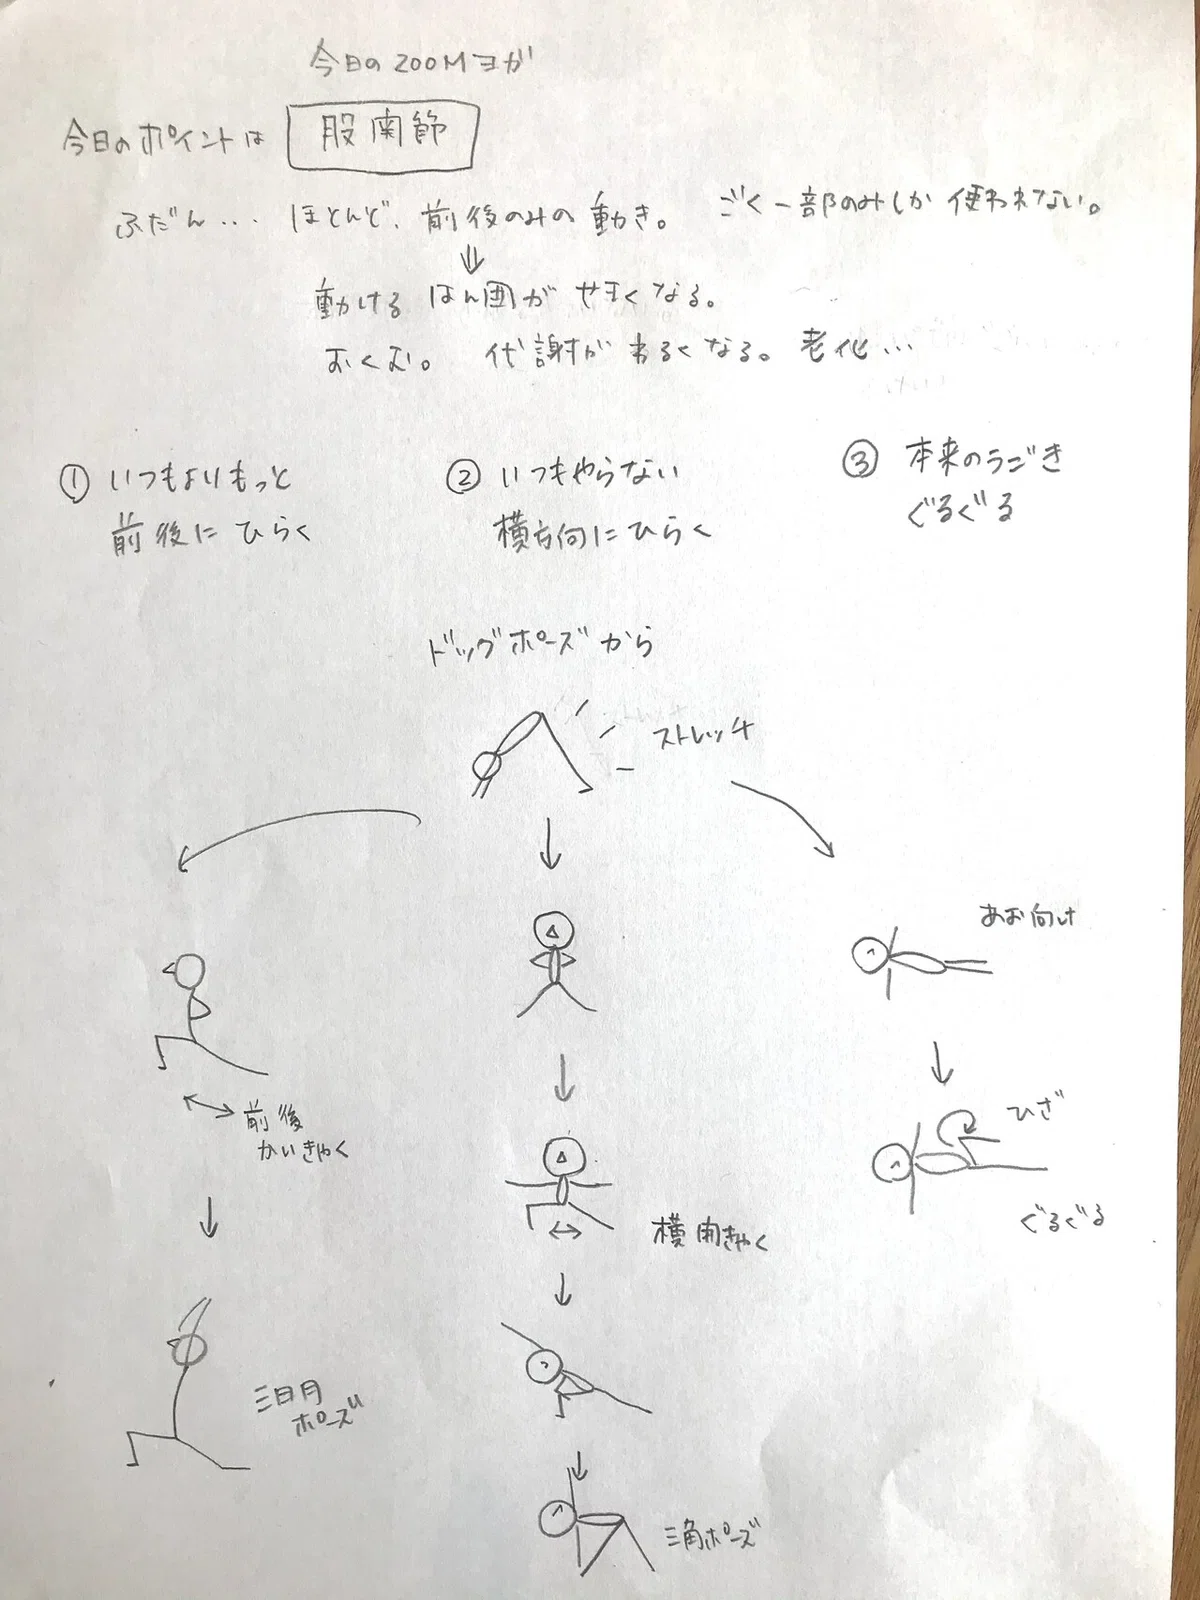 今日のZOOMヨガ
今日のポイントは 股関節
ふだん… ほとんど、前後のみの動き。 ごく一部のみしか使われない。
⇓
動けるはん囲がせまくなる。
むくむ。 代謝がわるくなる。老化…
① いつもよりもっと
前後にひらく
② いつもやらない
横方向にひらく
③ 本来のうごき
ぐるぐる
ドッグポーズから
ストレッチ
前後
かいきゃく
三日月
ポーズ
横開きゃく
三角ポーズ
あお向け
ひざ
ぐるぐる